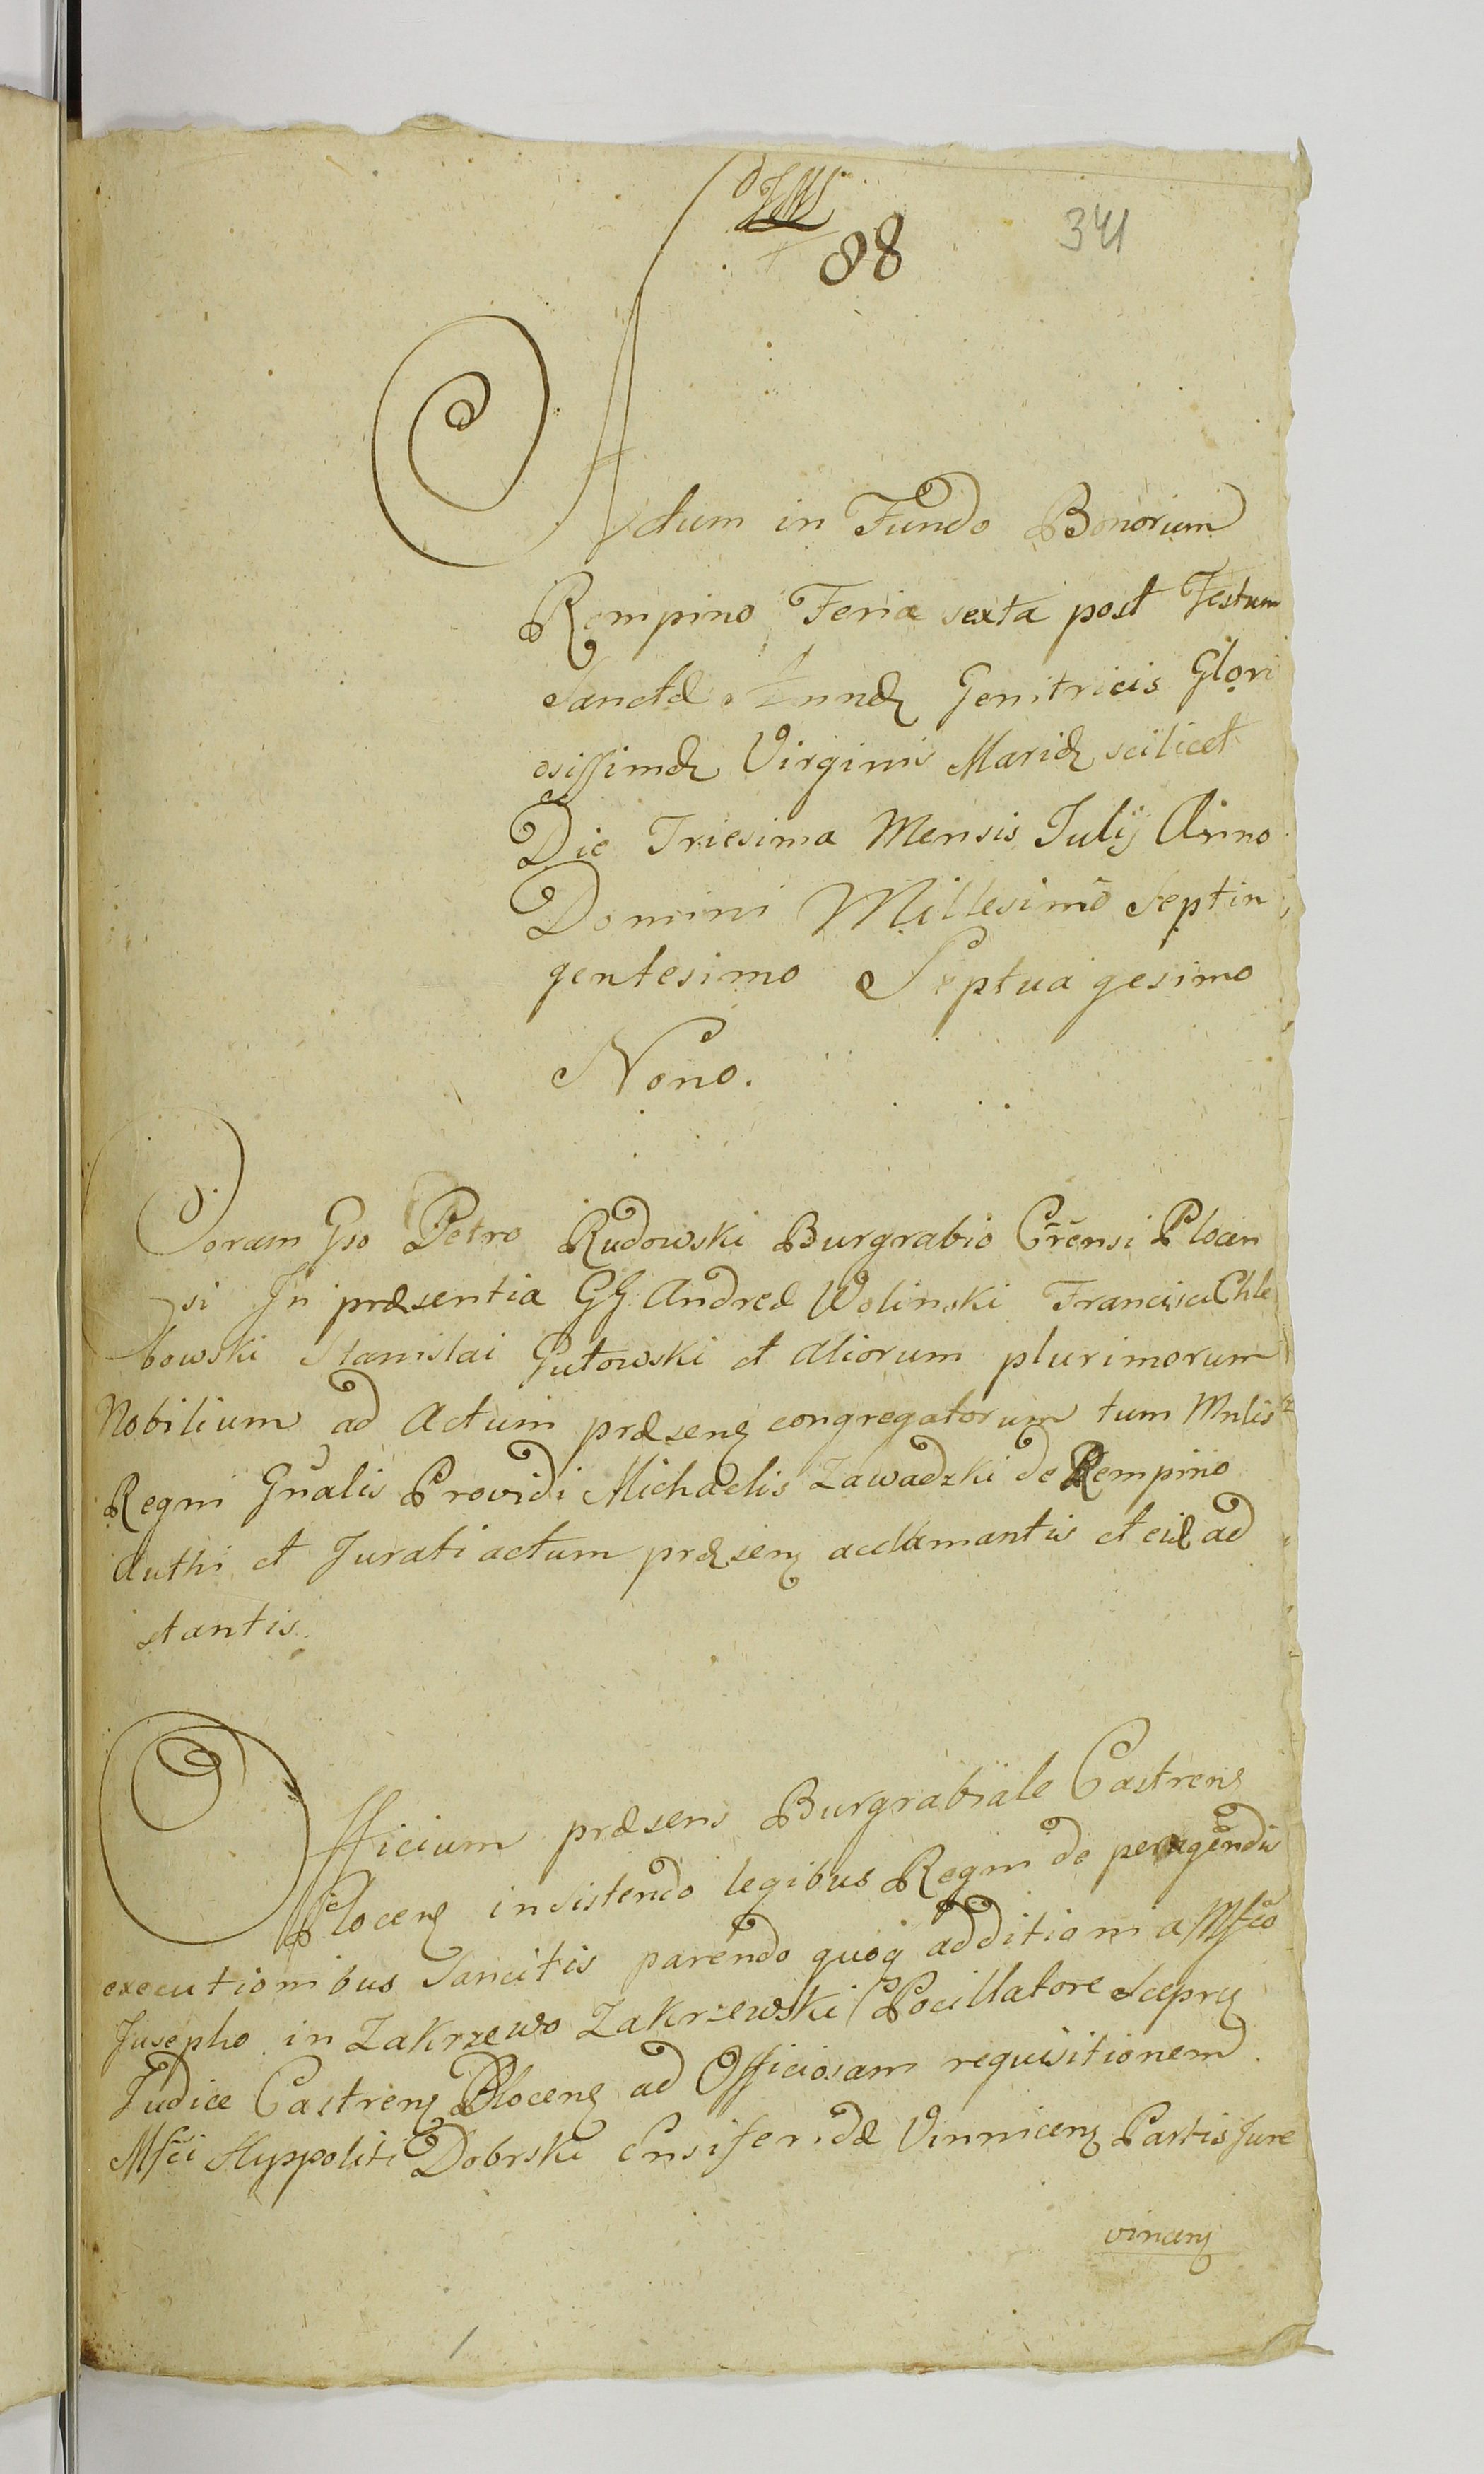 88
341
Actum in Fundo Bonorum
Rempino Feria sexta post Festum
Sanctæ Annæ Genitricis Glori
osissimæ Virginis Mariæ scilicet
Die Triesima Mensis Julij Anno
Domini Millesimo Septin
gentesimo Septuagesimo
Nono.
Coram Gso Petro Rudowski Burgrabio Crensi Plocen
si In præsentia GG Andreæ Wolinski Francisci Chle
bowski Stanislai Gutowski et Aliorum plurimorum
Nobilium ad Actum præsens congregatorum tum Mnlis
Regni Gnalis Providi Michaelis Zawadzki de Rempino
Authi et Jurati actum præsens acclamantis et eid ad
stantis.
Officium præsens Burgrabiale Castrens
Plocens insistendo legibus Regni de peragendis
executionibus Sancitis parendo quoq additioni a Mfco
Jusepho in Zakrzewo Zakrzewski Pocillatore Scepr
Judice Castrens Plocens ad Officiosam requisitionem
Mfci Hyppoliti Dobrski Ensiferidæ Vinnicens Partis Jure
vincens